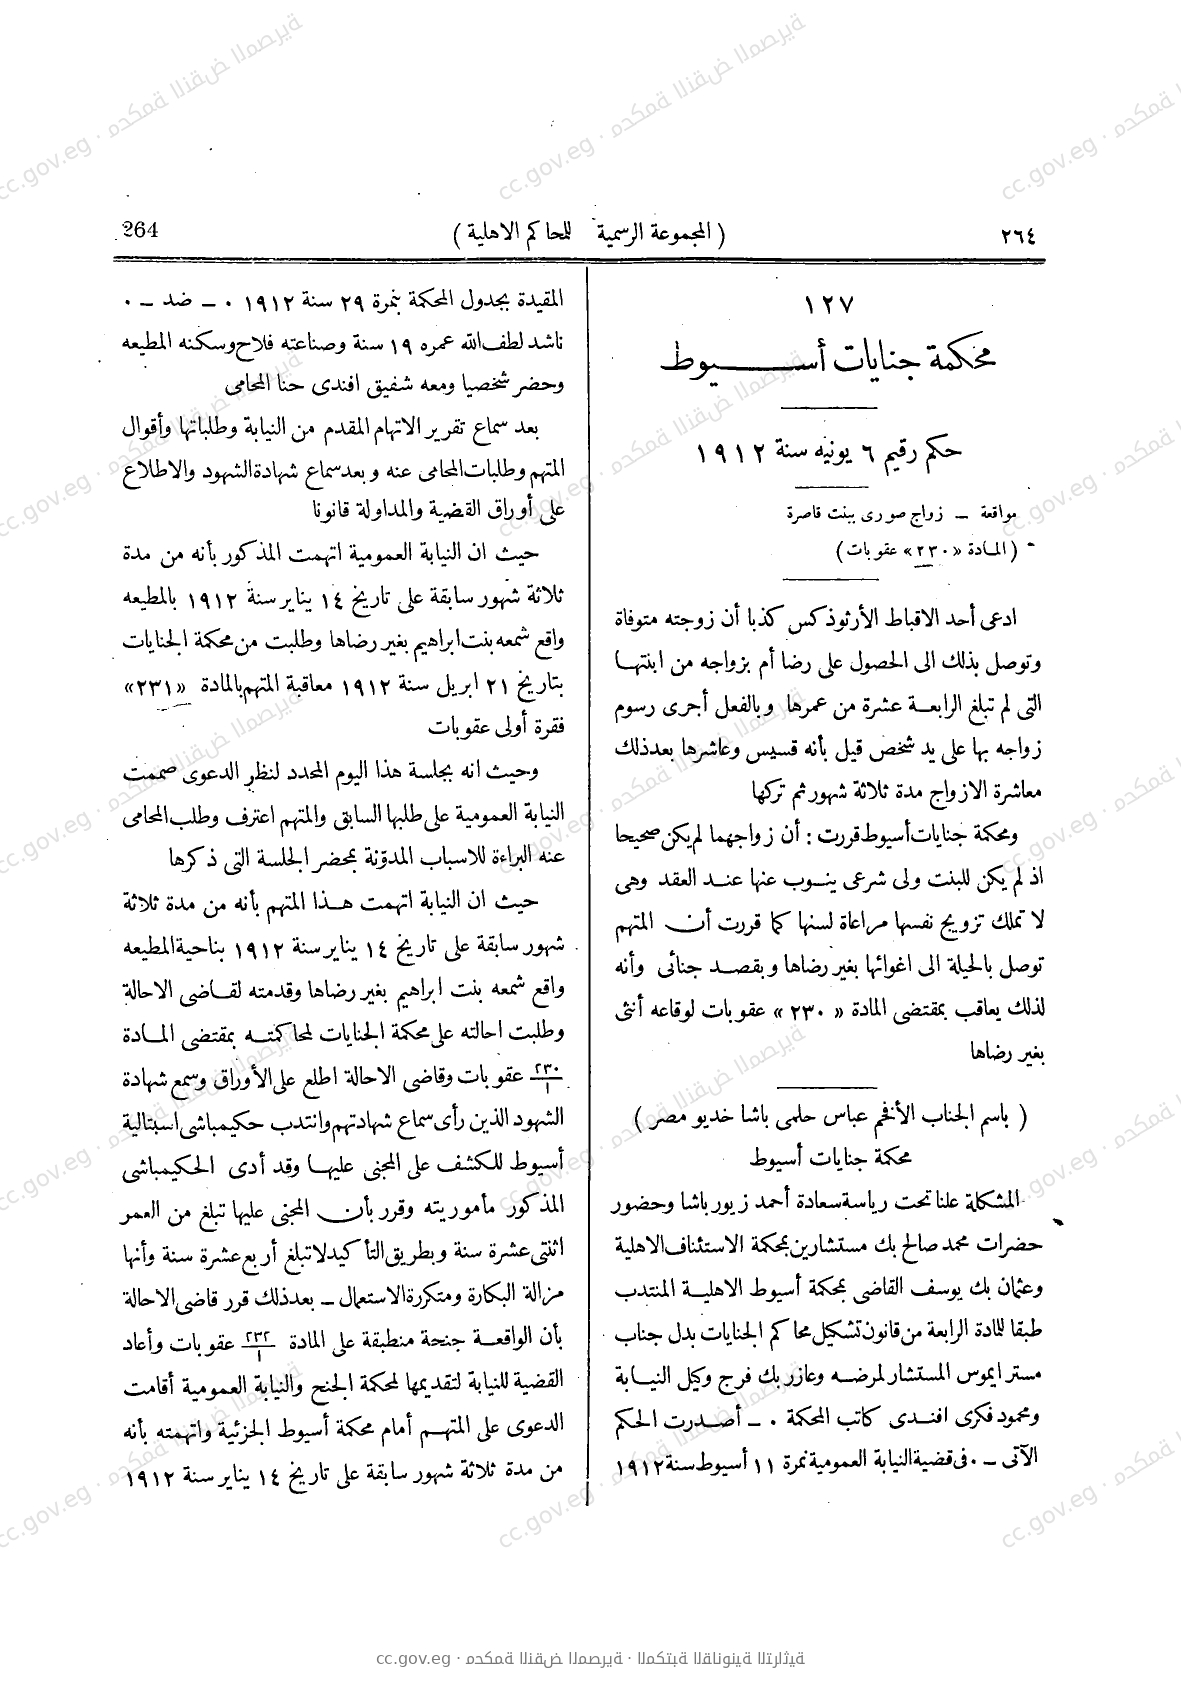 ٢٦٤ ( المجموعة الرسمية للمحاكم الاهلية ) 264
١٢٧
محكمة جنايات أســـــيوط
حكم رقيم ٦ يونيه سنة ١٩١٢
مواقعة ــ زواج صورى ببنت قاصرة
( المادة « ٢٣٠ » عقوبات )
ادعى أحد الاقباط الأرثوذكس كذبا أن زوجته متوفاة
وتوصل بذلك الى الحصول على رضا أم بزواجه من ابنتها
التى لم تبلغ الرابعة عشرة من عمرها وبالفعل أجرى رسوم
زواجه بها على يد شخص قيل بأنه قسيس وعاشرها بعد ذلك
معاشرة الازواج مدة ثلاثة شهور ثم تركها
ومحكمة جنايات أسيوط قررت : أن زواجهما لم يكن صحيحا
اذ لم يكن للبنت ولى شرعى ينوب عنها عند العقد وهى
لا تملك تزويج نفسها مراعاة لسنها كما قررت أن المتهم
توصل بالحيلة الى اغوائها بغير رضاها وبقصد جنائى وأنه
لذلك يعاقب بمقتضى المادة « ٢٣٠ » عقوبات لوقاعه أنثى
بغير رضاها
( باسم الجناب الأفخم عباس حلمى باشا خديو مصر )
محكمة جنايات أسيوط
المشكلة علنا تحت رياسة سعادة أحمد زيور باشا وحضور
حضرات محمد صالح بك مستشارين بمحكمة الاستئناف الاهلية
وعثمان بك يوسف القاضى بمحكمة أسيوط الاهلية المنتدب
طبقا للمادة الرابعة من قانون تشكيل محاكم الجنايات بدل جناب
مستر ايموس المستشار لمرضه وعازر بك فرج وكيل النيابة
ومحمود فكرى افندى كاتب المحكمة ٠ ــ أصدرت الحكم
الآتى ــ ٠ فى قضية النيابة العمومية نمرة ١١ أسيوط سنة ١٩١٢
المقيدة بجدول المحكمة بنمرة ٢٩ سنة ١٩١٢ ٠ ــ ضد ــ ٠
ناشد لطف الله عمره ١٩ سنة وصناعته فلاح وسكنه المطيعه
وحضر شخصيا ومعه شفيق افندى حنا المحامى
بعد سماع تقرير الاتهام المقدم من النيابة وطلباتها وأقوال
المتهم وطلبات المحامى عنه وبعد سماع شهادة الشهود والاطلاع
على أوراق القضية والمداولة قانونا
حيث ان النيابة العمومية اتهمت المذكور بأنه من مدة
ثلاثة شهور سابقة على تاريخ ١٤ يناير سنة ١٩١٢ بالمطيعه
واقع شمعه بنت ابراهيم بغير رضاها وطلبت من محكمة الجنايات
بتاريخ ٢١ ابريل سنة ١٩١٢ معاقبة المتهم بالمادة « ٢٣١ »
فقرة أولى عقوبات
وحيث انه بجلسة هذا اليوم المحدد لنظر الدعوى صممت
النيابة العمومية على طلبها السابق والمتهم اعترف وطلب المحامى
عنه البراءة للاسباب المدوّنة بمحضر الجلسة التى ذكرها
حيث ان النيابة اتهمت هذا المتهم بأنه من مدة ثلاثة
شهور سابقة على تاريخ ١٤ يناير سنة ١٩١٢ بناحية المطيعه
واقع شمعه بنت ابراهيم بغير رضاها وقدمته لقاضى الاحالة
وطلبت احالته على محكمة الجنايات لمحاكمته بمقتضى المادة
٢٣٠/١ عقوبات وقاضى الاحالة اطلع على الأوراق وسمع شهادة
الشهود الذين رأى سماع شهادتهم وانتدب حكيمباشى اسبتالية
أسيوط للكشف على المجنى عليها وقد أدى الحكيمباشى
المذكور مأموريته وقرر بأن المجنى عليها تبلغ من العمر
اثنتى عشرة سنة وبطريق التأكيد لا تبلغ أربع عشرة سنة وأنها
مزالة البكارة ومتكررة الاستعمال ــ بعد ذلك قرر قاضى الاحالة
بأن الواقعة جنحة منطبقة على المادة ٢٣٢/١ عقوبات وأعاد
القضية للنيابة لتقديمها لمحكمة الجنح والنيابة العمومية أقامت
الدعوى على المتهم أمام محكمة أسيوط الجزئية واتهمته بأنه
من مدة ثلاثة شهور سابقة على تاريخ ١٤ يناير سنة ١٩١٢
cc.gov.eg · محكمة النقض المصرية · المكتبة القانونية التراثية